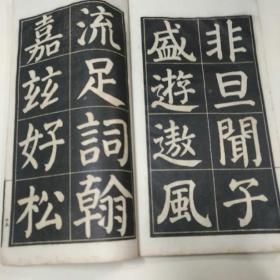 非旦聞子
盛遊遨風
流足詞翰
嘉兹好松